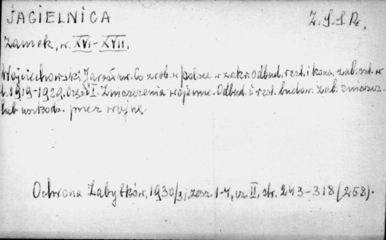 JAGIELNICA Z.S.S.R.
Zamek, w. XVI-XVII.
Wojciechowski Jarosław. Co zrob. w Polsce w zakr. odbud., rest. i konserw. zab. arch. w
l. 1919-1929. Część I. Zniszczenia wojenne. Odbud. i rest. budow. zab. zniszcz.
lub uszkodz. przez wojnę.
Ochrona Zabytków, 1930/31, zesz. 1-4, cz. II, str. 243-318 (258).